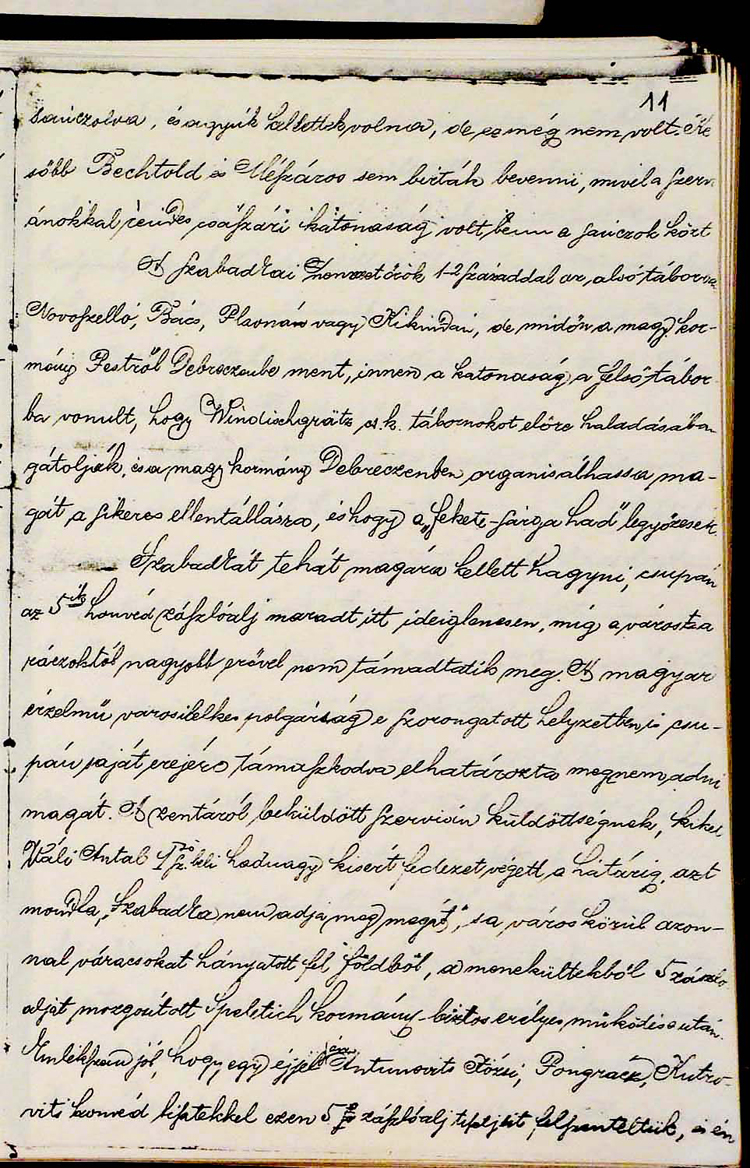 11
sánczolva, és agyúk kellettek volna, de ez még nem volt. Ké
sőbb Bechtold és Mészáros sem birták bevenni, mivel a szerv
iánokkal rendes császári katonaság volt benn a sánczok közt
A szabadkai nemzetőrök 1-2 századdal az alsó táborra
Novoszelló, Bács, vagy Kikindai, de midőn a magy. kor-
mány Pestről Debreczenbe ment, innen a katonaság a felső tábor-
ba vonult, hogy Windischgrätz cs. k. tábornokot előre haladásába
gátolják, és a magy kormány Debreczenben organisálhassa ma-
gát a sikeres ellentállásra, és hogy a „fekete-sárga had" legyőzessék.
Szabadkát tehát magára kellett hagyni, csupán
az 5ik honvéd zászlóalj maradt itt ideiglenesen, míg a város a
ráczoktól nagyobb erővel nem támadtatik meg. A magyar
érzelmű városi lelkes polgárság e szorongatott helyzetben is csu-
pán saját erejére támaszkodva elhatározta meg nem adni
magát. A zentáról beküldött szervián küldöttségnek, kiket
Váli Antal 1ső sz. beli hadnagy kisért fedezet végett a hátárig, azt
mondta, „Szabadka nem adja meg magát", s a város körül azon-
nal váracsokat hányatott fel földből, a menekültekből 5 zászló
alját mozgósított Speletich kormány-biztos erélyes müködése után.
Emlékszem jól, hogy egy éjjel én Antunovits Józsi, Pongrácz, Kutro-
vits honvéd tisztekkel ezen 5 zászlóalj tisztjeit felszenteltük, és én